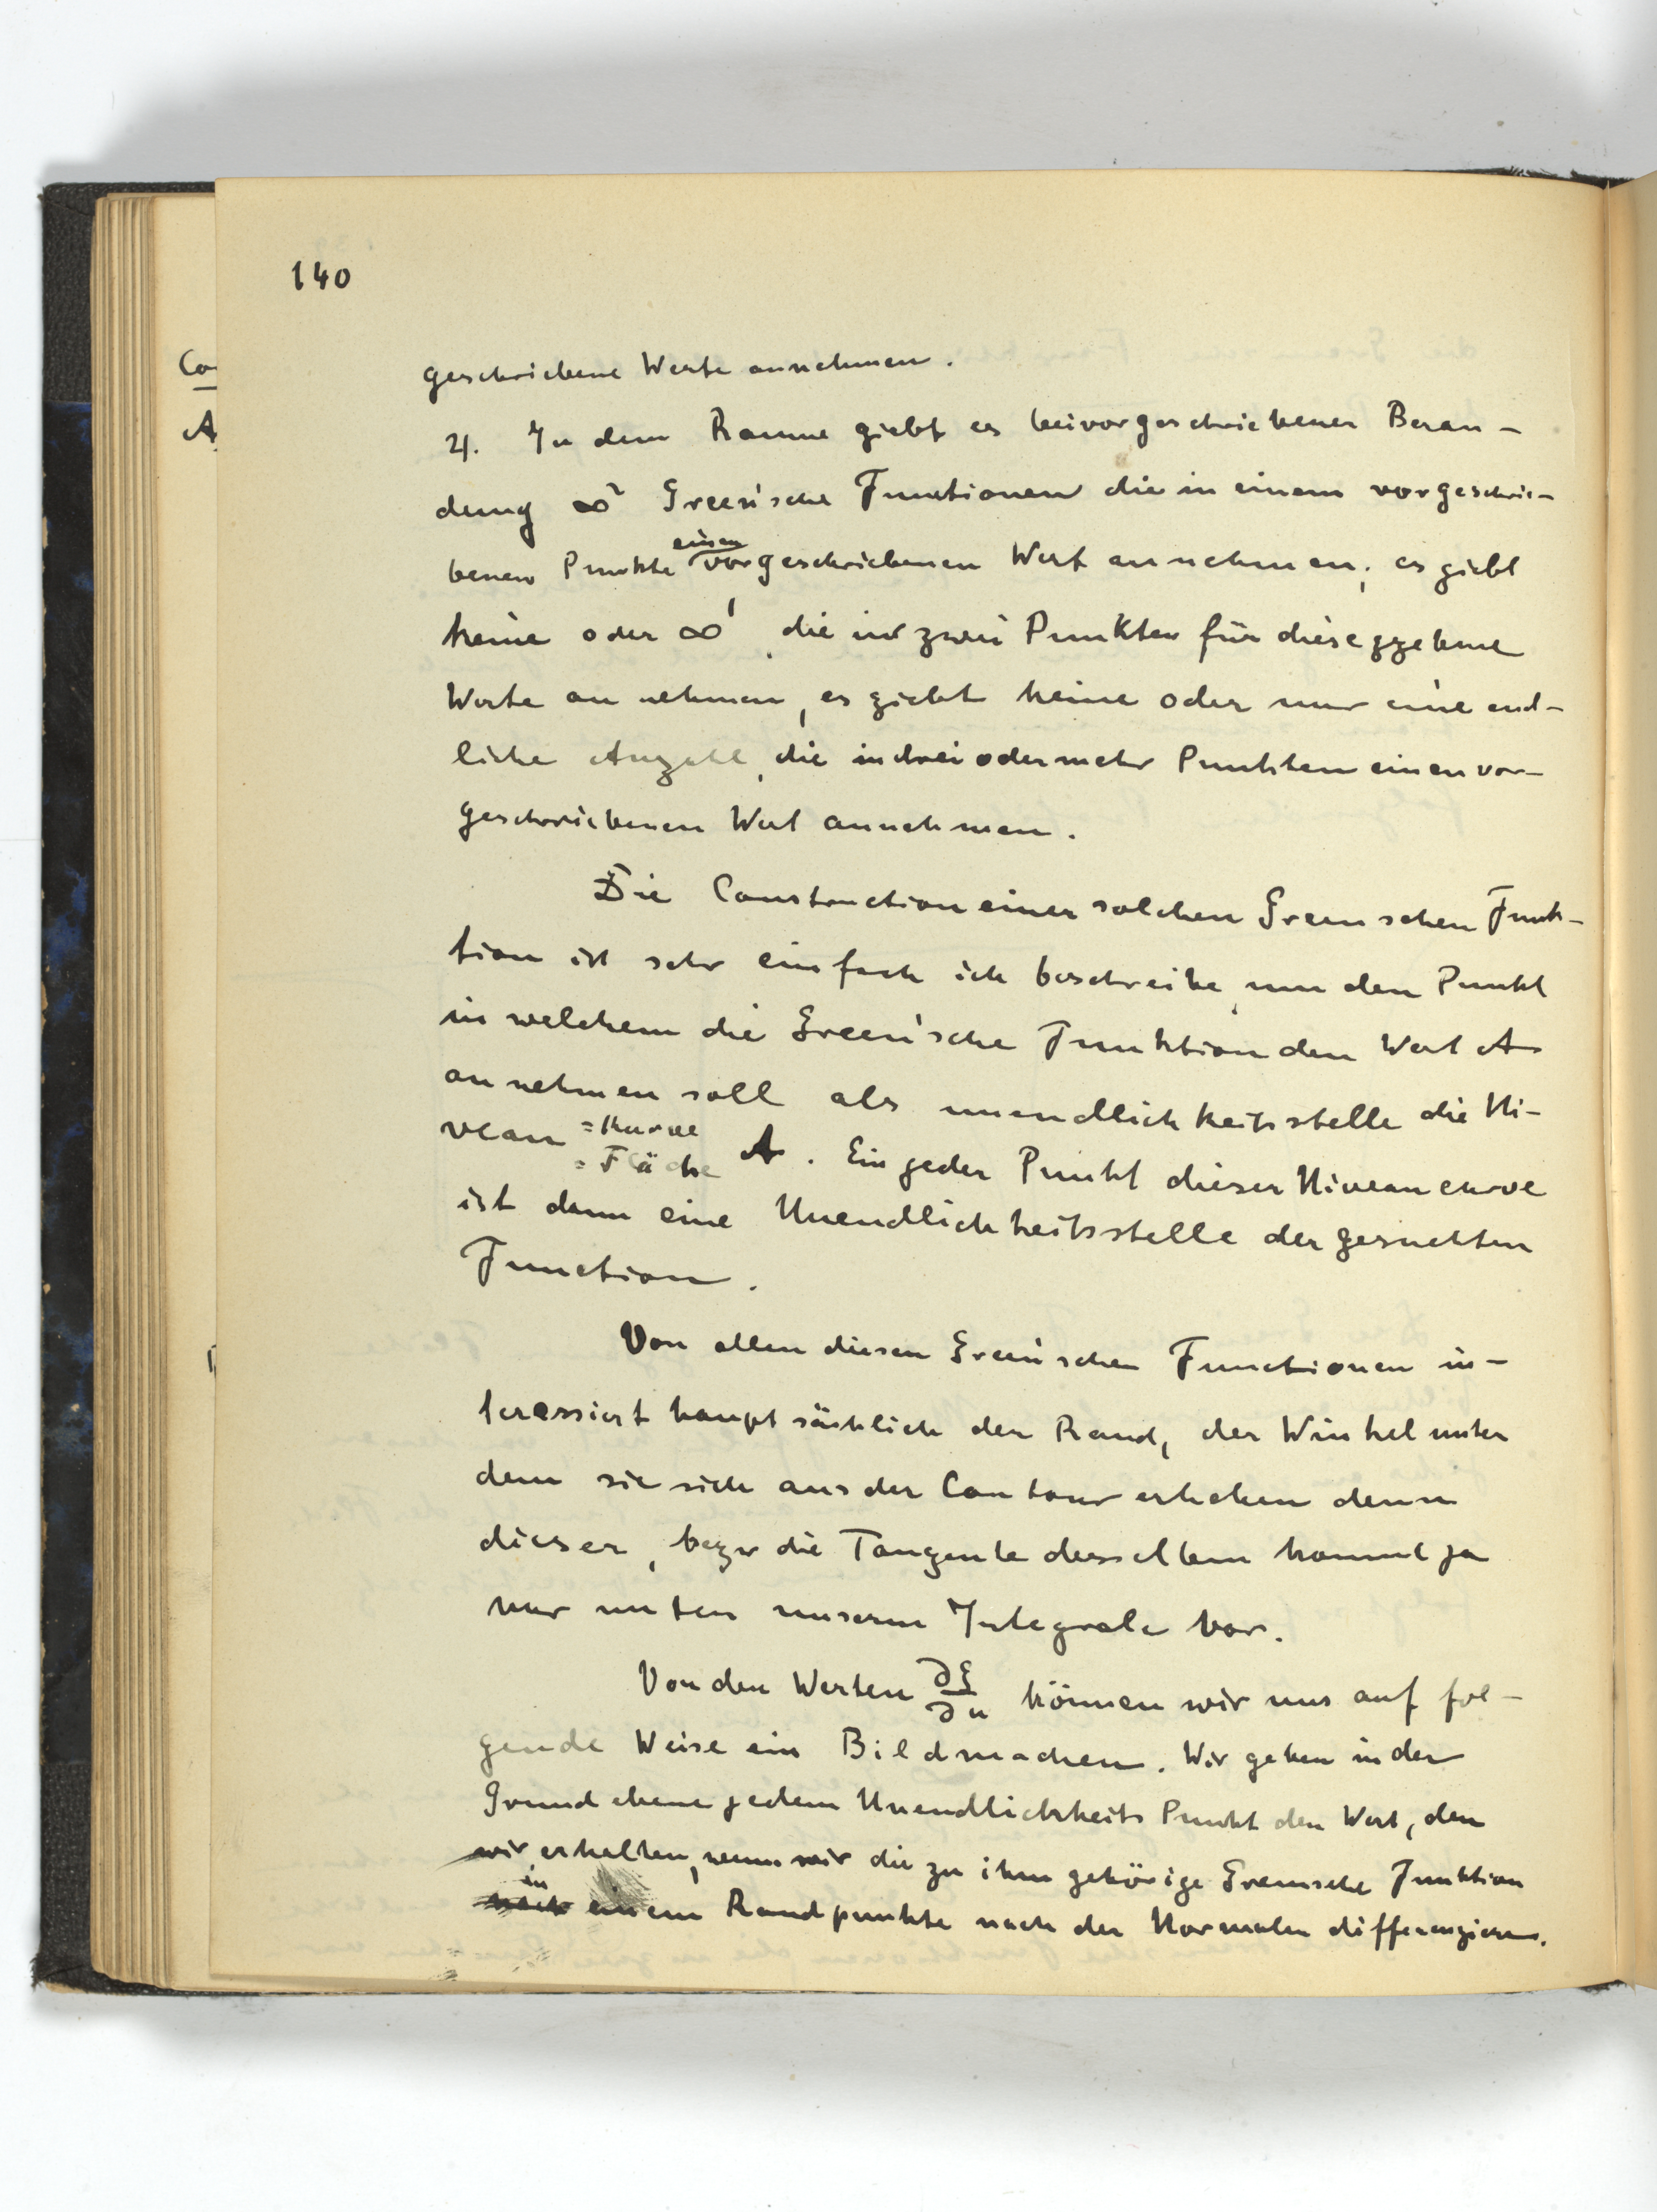 140
Co
A
geschriebene Werte annehmen.
4. In dem Raume giebt es bei vorgeschriebener Beran-
dung ∞² Green'sche Functionen die in einem vorgeschrie-
benen Punkte einen vorgeschriebenen Wert annehmen; es giebt
keine oder ∞¹, die in zwei Punkten für diese ggebene
Werte annehmen, es giebt keine oder nur eine end-
liche Anzahl, die in drei oder mehr Punkten einen vor-
geschriebenen Wert annehmen.
Die Construction einer solchen Greenschen Funk-
tion ist sehr einfach ich beschreibe, um den Punkt
in welchem die Green'sche Funktion den Wert A
annehmen soll als unendlichkeitsstelle die Ni-
veau =Kurve
=Fläche A. Ein jeder Punkt dieser Niveaucurve
ist dann eine Unendlichkeitsstelle der gesuchten
Function.
Von allen diesen Green'schen Functionen in-
teressiert hauptsächlich der Rand, der Winkel unter
dem sie sich aus der Contour erheben denn
dieser, bezw die Tangente desselben kommt ja
nur unter unserm Integrale vor.
Von den Werten ∂G/∂n können wir uns auf fol-
gende Weise ein Bild machen. Wir geben in der
Grundebene jedem Unendlichkeits Punkt den Wert, den
wir erhalten, wenn wir die zu ihm gehörige Greensche Funktion
in
nach einem Randpunkte nach der Normalen differenzieren.